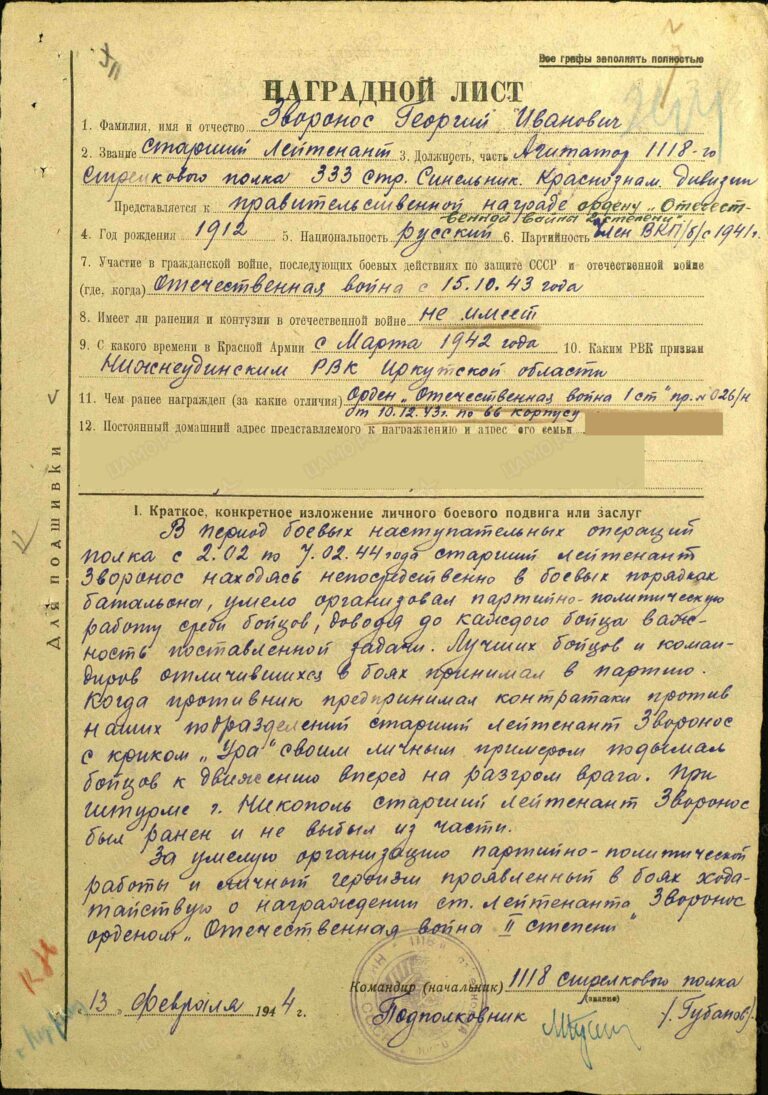 Все графы заполнять полностью
НАГРАДНОЙ ЛИСТ
1. Фамилия, имя и отчество Зворонос Георгий Иванович
2. Звание старший лейтенант 3. Должность, часть Агитатор 1118-го
стрелкового полка 333 стр. Синельник. Краснознам. дивизии
Представляется к правительственной награде ордену „Отечест-
венной война 2 степени".
4. Год рождения 1912 5. Национальность русский 6. Партийность член ВКП/б/ с 1941 г.
7. Участие в гражданской войне, последующих боевых действиях по защите СССР и отечественной войне
(где, когда) Отечественная война с 15.10.43 года
8. Имеет ли ранения и контузии в отечественной войне не имеет
9. С какого времени в Красной Армии с Марта 1942 года 10. Каким РВК призван
Нижнеудинским РВК Иркутской области
11. Чем ранее награжден (за какие отличия) Орден „Отечественная война 1 ст" пр. № 026/н
от 10.12.43г. по 66 корпусу
12. Постоянный домашний адрес представляемого к награждению и адрес его семьи
Для подшивки
I. Краткое, конкретное изложение личного боевого подвига или заслуг
В период боевых наступательных операций
полка с 2.02 по 7.02.44 года старший лейтенант
Зворонос находясь непосредственно в боевых порядках
батальона, умело организовал партийно-политическую
работу среди бойцов, доводя до каждого бойца важ-
ность поставленной задачи. Лучших бойцов и коман-
диров отличившихся в боях принимал в партию.
Когда противник предпринимал контратаки против
наших подразделений старший лейтенант Зворонос
с криком „Ура" своим личным примером подымал
бойцов к движению вперед на разгром врага. При
штурме г. Никополь старший лейтенант Зворонос
был ранен и не выбыл из части.
За умелую организацию партийно-политической
работы и личный героизм проявленный в боях хода-
тайствую о награждении ст. лейтенанта Зворонос
орденом „Отечественная война II степени"
Командир (начальник) 1118 стрелкового полка
(звание)
„13" февраля 1944 г. Подполковник /Губанов/